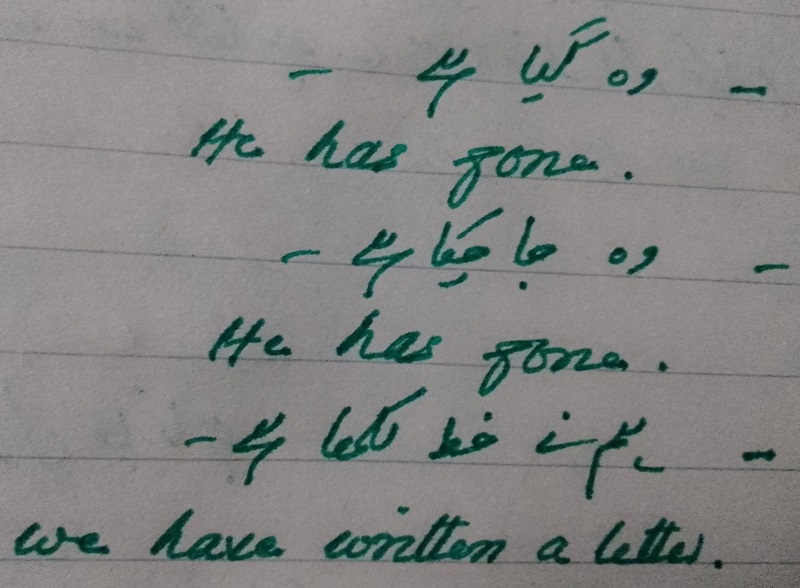 - وہ گیا ہے -
He has gone.
- وہ جا چکا ہے -
He has gone.
- ہم نے خط لکھا ہے -
we have written a letter.